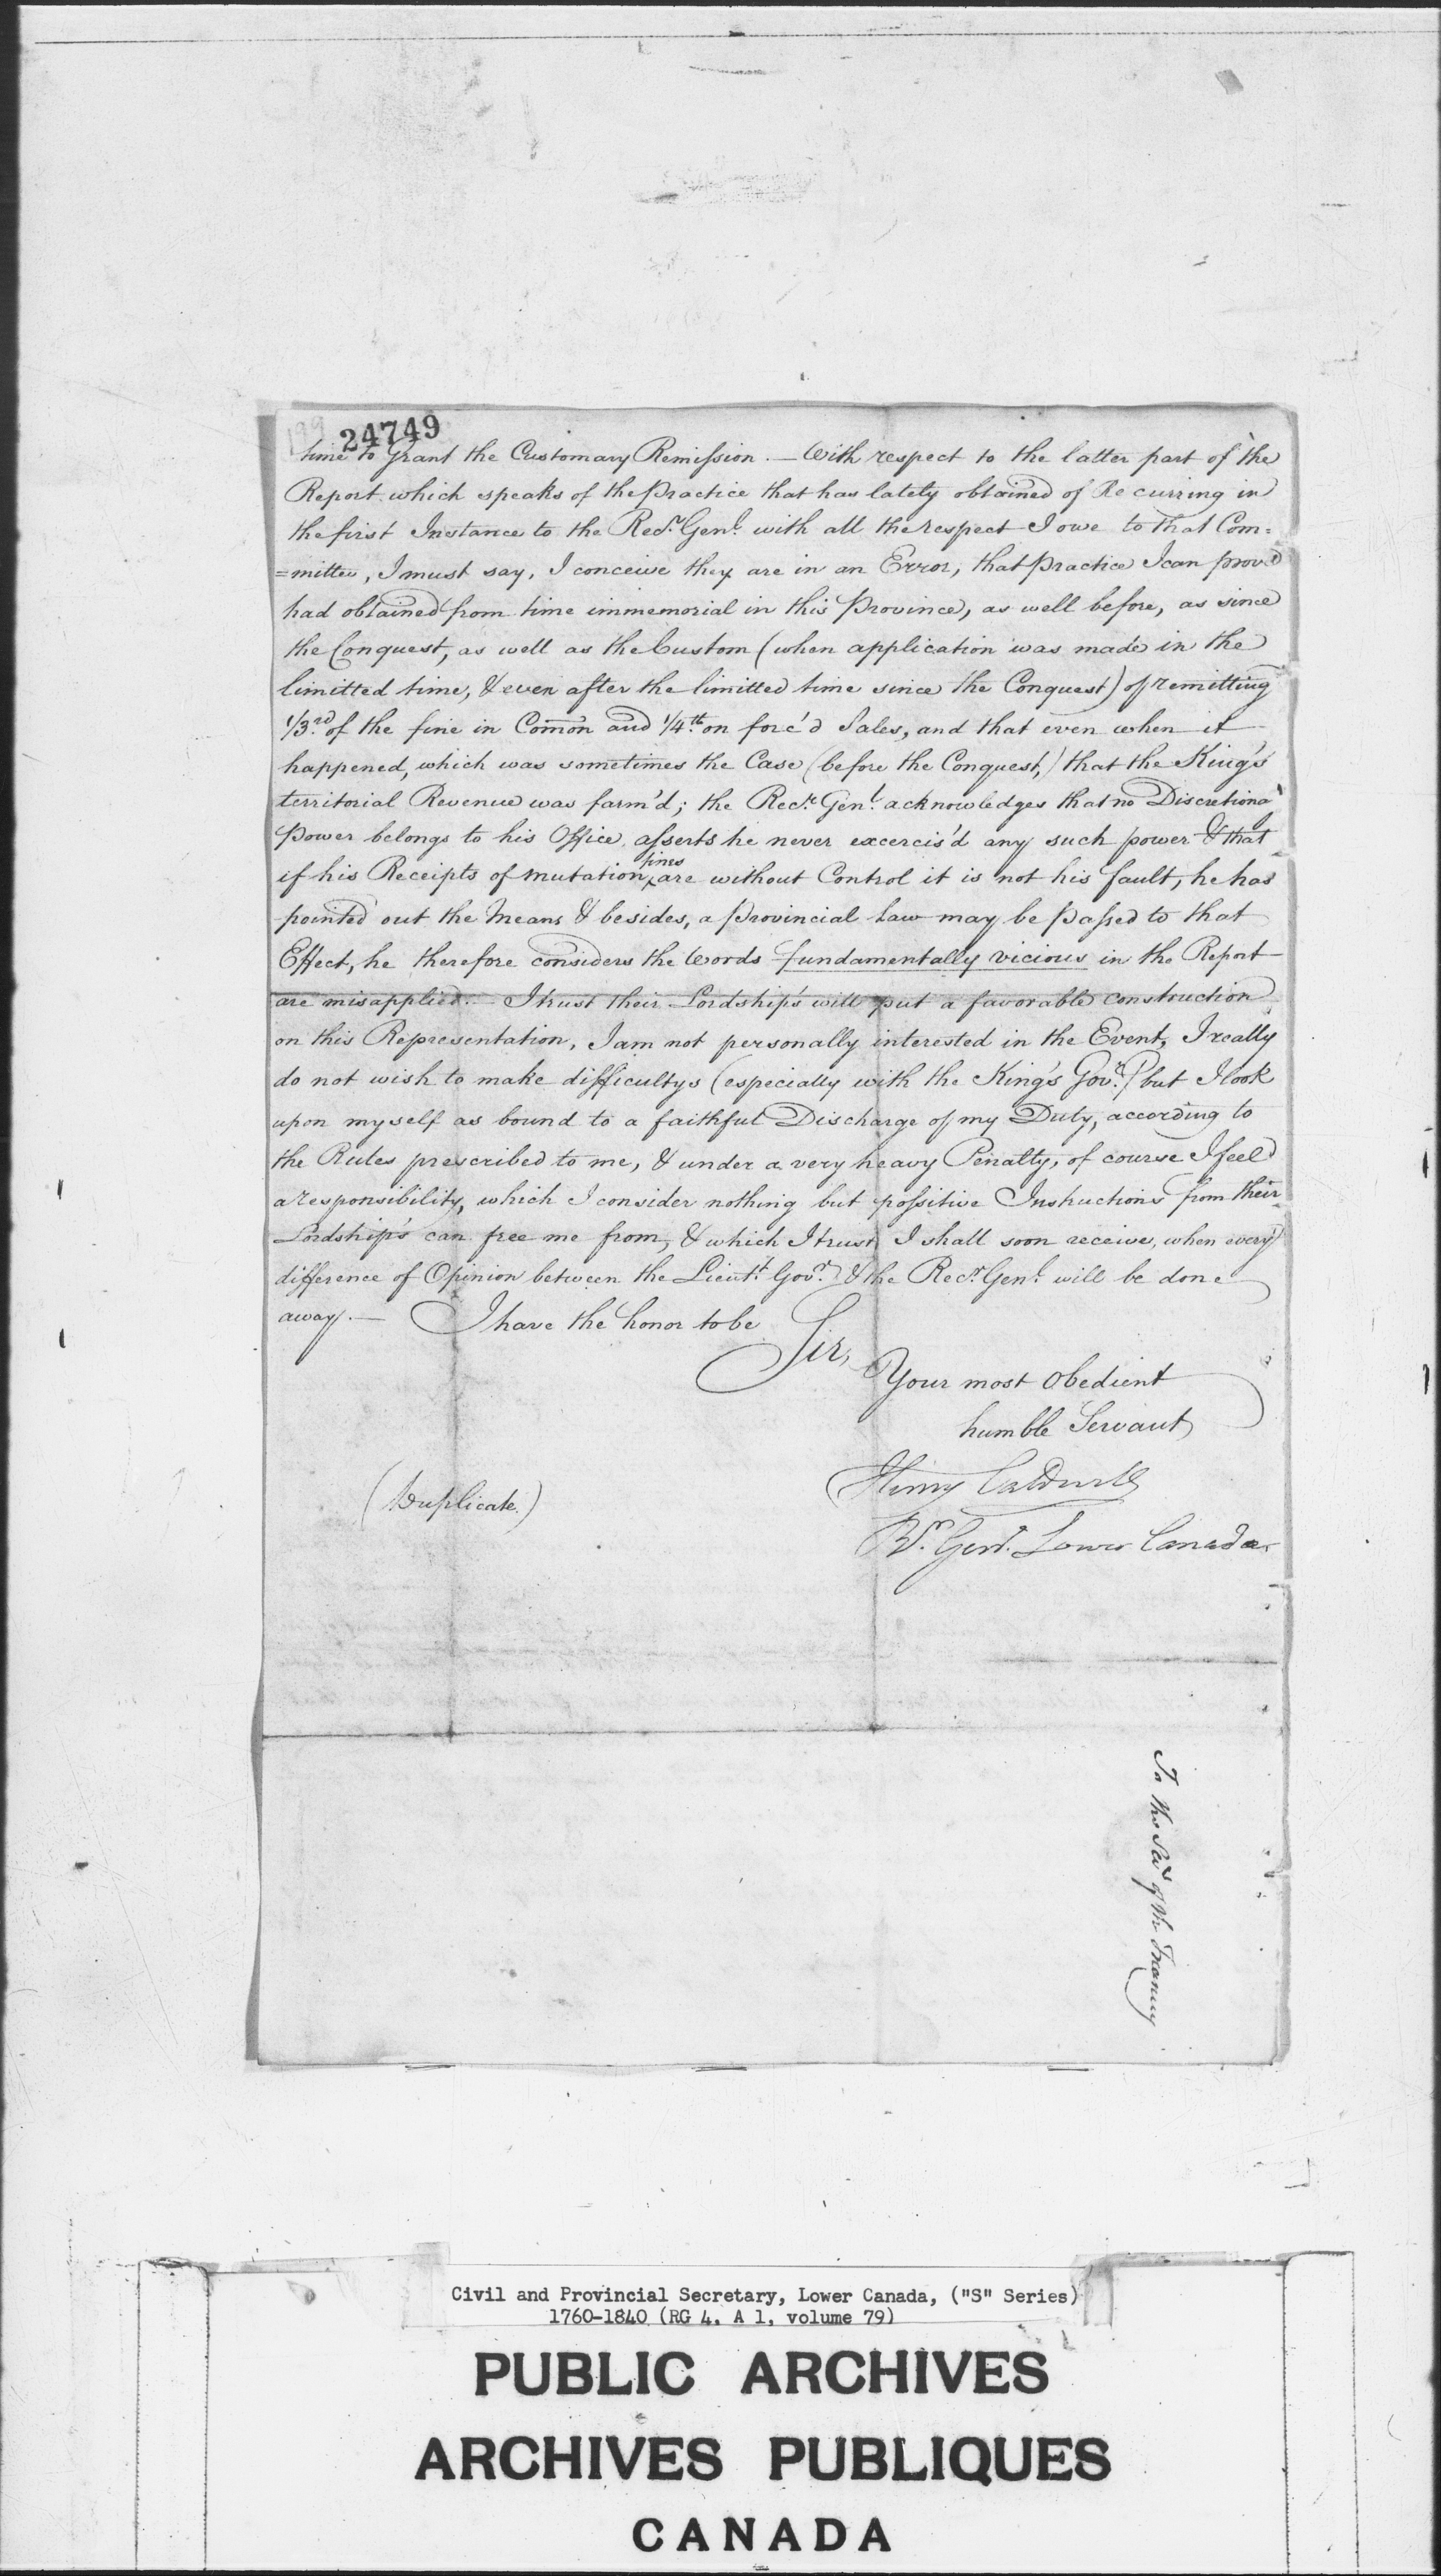 199
24749
time to Grant the Customary Remission. — With respect to the latter part of the
Report which speaks of the Practice that has lately obtained of Recurring in
the first Instance to the Recr. Genl. with all the respect I owe to that Com=
=mittee, I must say, I conceive they are in an Error, that Practice I can prove
had obtained from time immemorial in this Province, as well before, as since
the Conquest, as well as the Custom (when application was made in the
limitted time, & even after the limitted time since the Conquest) of remitting
1/3rd. of the fine in Comōn and 1/4th. on forc'd Sales, and that even when it
happened, which was sometimes the Case (before the Conquest,) that the King's
territorial Revenue was farm'd; the Recr. Genl. acknowledges that no Discretiona'y
Power belongs to his Office, asserts he never excercis'd any such power & that
if his Receipts of mutation fines are without Control it is not his fault, he has
pointed out the Means & besides, a Provincial Law may be Passed to that
Effect, he therefore considers the Words fundamentally vicious in the Report
are misapplied. — I trust their Lordship's will put a favorable construction
on this Representation, I am not personally interested in the Event, I really
do not wish to make difficultys (especially with the King's Govr.) but I look
upon myself as bound to a faithful Discharge of my Duty, according to
the Rules prescribed to me, & under a very heavy Penalty, of course I feel
a responsibility, which I consider nothing but possitive Instructions from their
Lordship's can free me from, & which I trust I shall soon receive, when every
difference of Opinion between the Lieutt. Govr. & the Recr. Genl. will be done
away. — I have the honor to be
Sir,
Your most Obedient
humble Servant
(Duplicate.)
Henry Caldwell
Rr. Genl. Lower Canada
To the Secry of the Treasury
Civil and Provincial Secretary, Lower Canada, ("S" Series)
1760-1840 (RG 4, A 1, volume 79)
PUBLIC ARCHIVES
ARCHIVES PUBLIQUES
CANADA